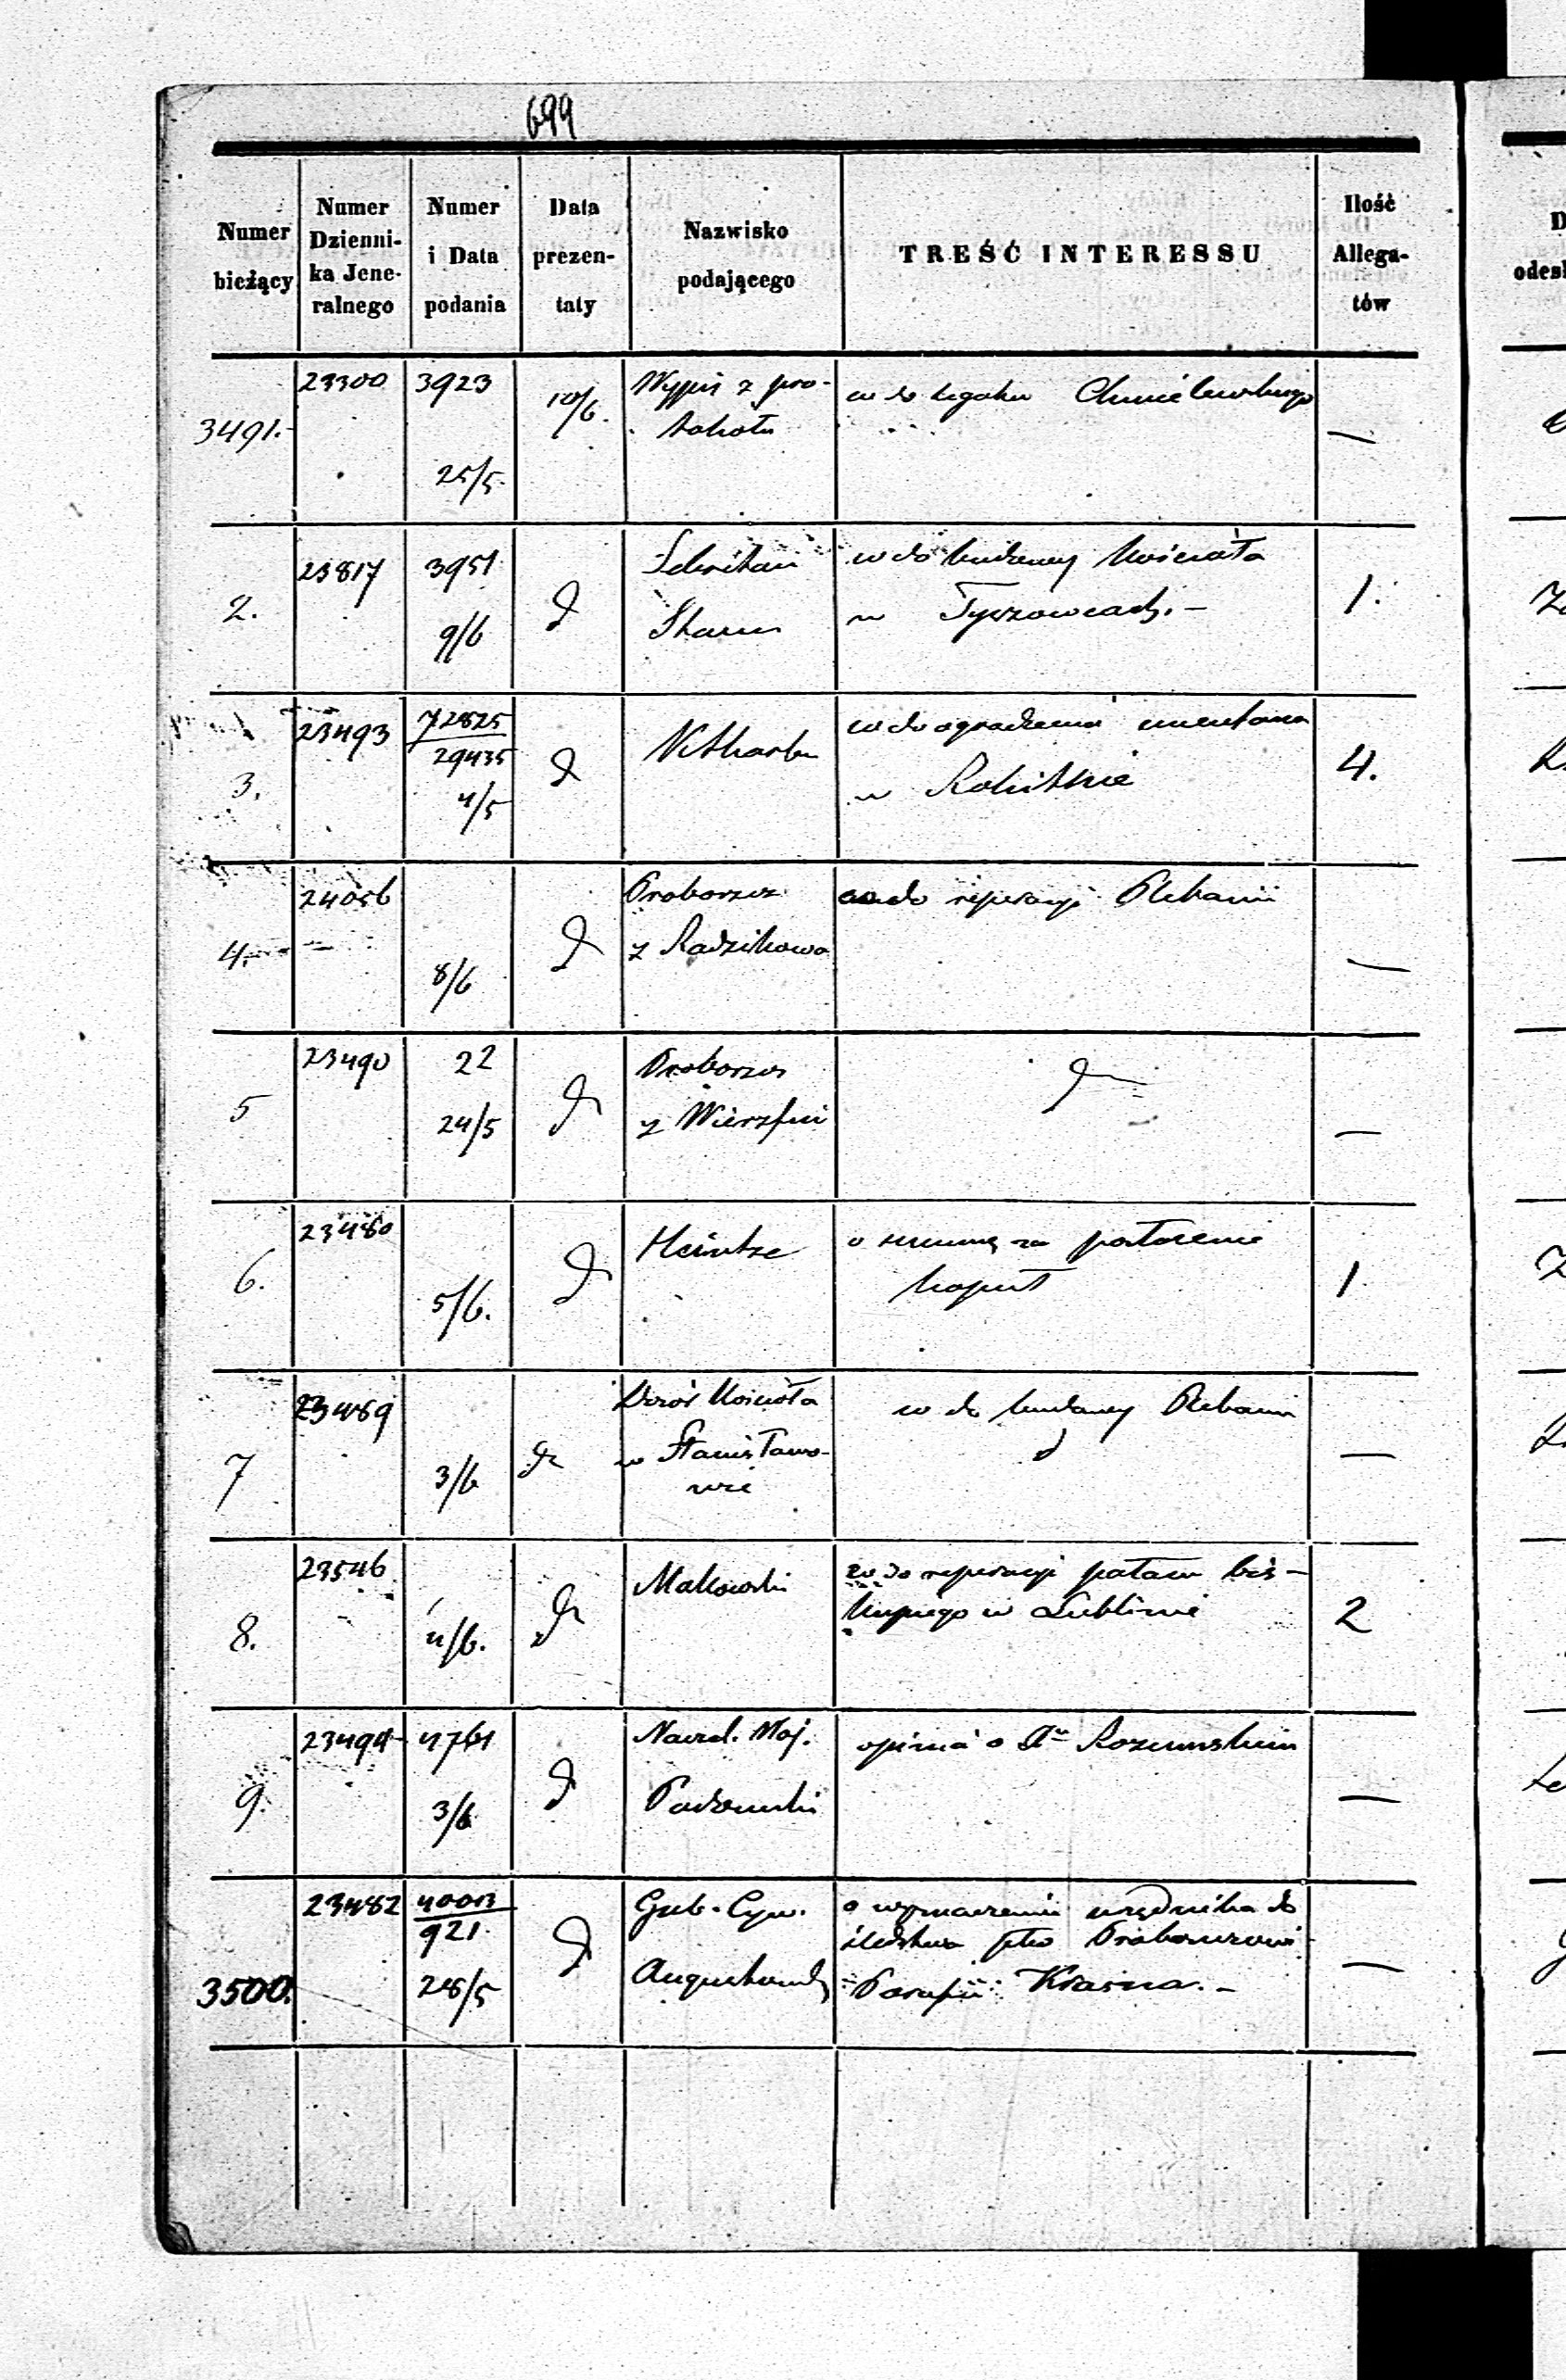 699
Numer bieżący
Numer Dzienni-ka Jene-ralnego
Numer i Data podania
Data prezen-taty
Nazwisko podającego
TREŚĆ INTERESSU
Ilość Allega-tów
3491.
23300
3923
25/5.
10/6.
Wypis z pro-
tokołu
w do legatu Chmielewskiego
—
2.
23817
3951
9/6
w do budowy Kościoła
w Tyszowcach. —
1.
3.
23493
72825
29435
4/5
w do ogrodzenia cmentarza
w Rokitnie
4.
4.
24056
8/6
Proboszcz
z Radzikowa
w do reperacyi Plebanii
—
5
23490
22
24/5
Proboszcz
z
—
6.
23480
5/6.
Heintze
o summę za postawienie
kopuł
1
7
23489
3/6
Dozór Kościoła
w Stanisławo-
wie
w do budowy Plebanii
—
8.
23546
4/6.
Makowski
w do reperacyi pałacu bis-
kupiego w Lublinie
2
9.
23494
4761
3/6
Naczel. Woj.
opinia o Rozumskim
—
3500.
23482
40013
921.
28/5
Gub. Cyw.
Augustowski
o wyznaczeniu urzędnika do
śledztwa pko Proboszczowi
Parafii Krasna. —
—